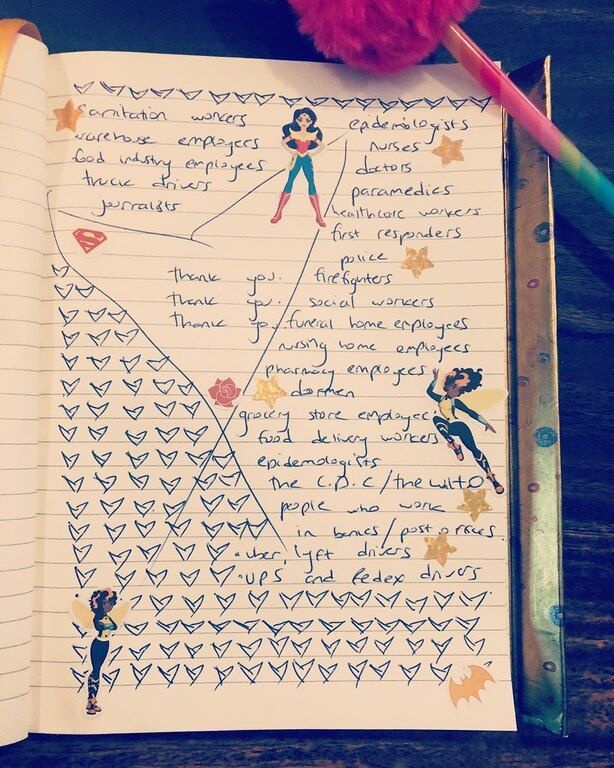 Sanitation workers
warehouse employees
food industry employees
truck drivers
journalists
epidemiologists
nurses
doctors
paramedics
healthcare workers
first responders
police
firefighters
social workers
funeral home employees
nursing home employees
pharmacy employees
doormen
grocery store employee
food delivery workers
epidemologists
the C.D.C / the W.H.O
people who work
in banks / post offices.
• uber, lyft drivers
• UPS and fedex drivers
thank you.
thank you.
thank you